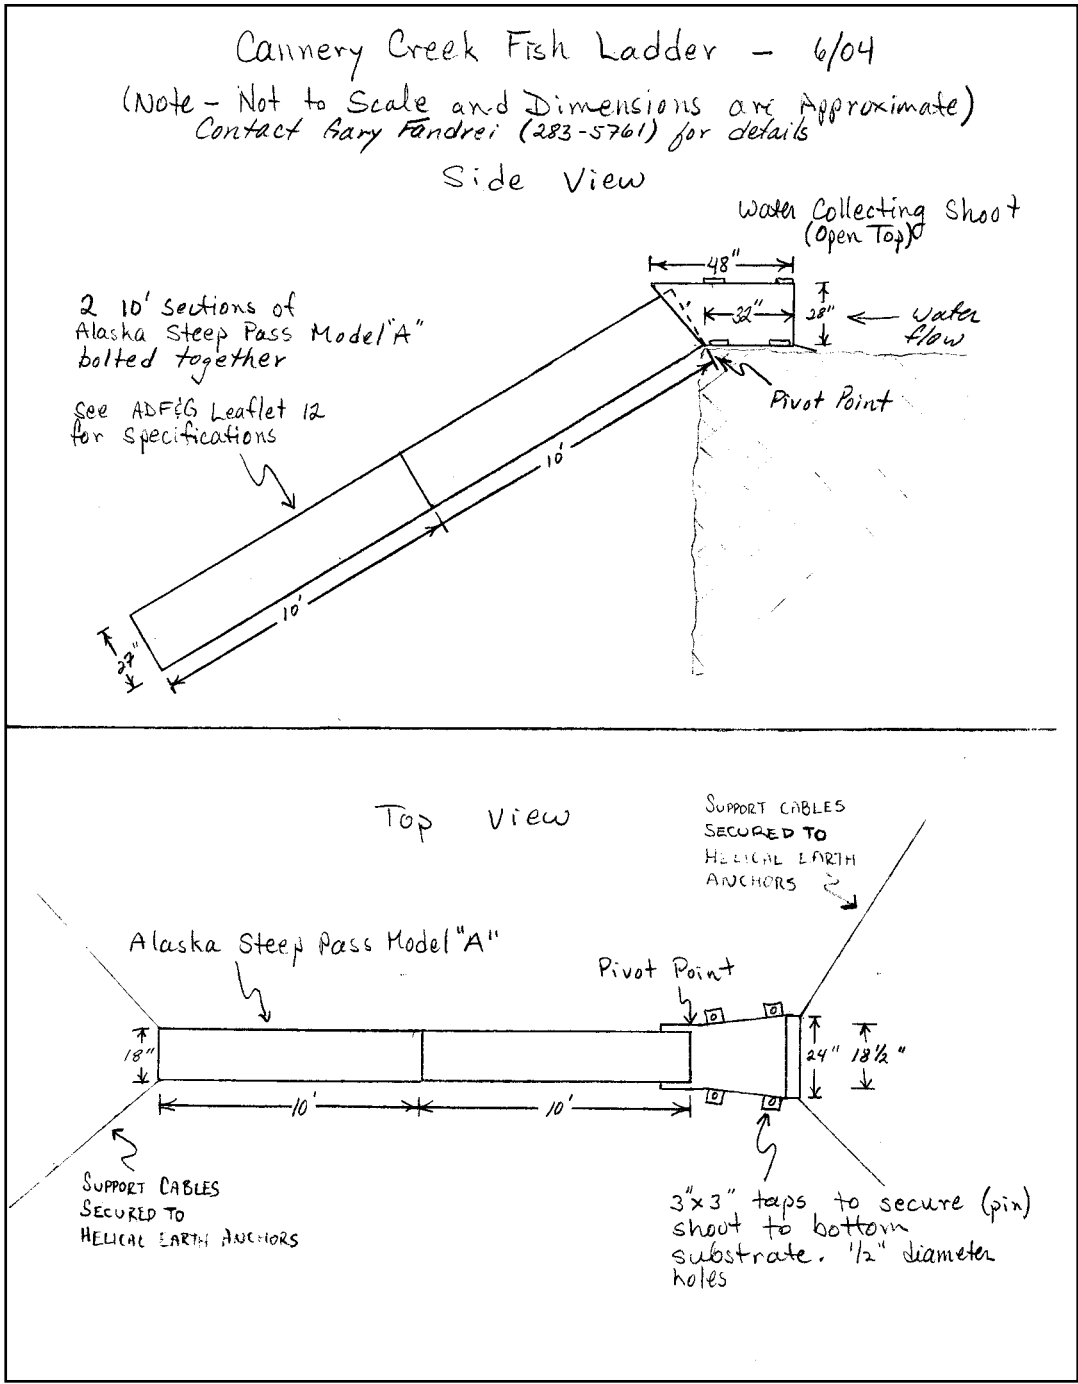 Cannery Creek Fish Ladder - 6/04
(Note - Not to Scale and Dimensions are Approximate)
Contact Gary Fandrei (283-5761) for details
Side View
Water Collecting Shoot
(Open Top)
48"
32"
28"
Water
flow
Pivot Point
2 10' Sections of
Alaska Steep Pass Model "A"
bolted together
See ADF&G Leaflet 12
for Specifications
10'
10'
27"
Top View
SUPPORT CABLES
SECURED TO
HELICAL EARTH
ANCHORS
Alaska Steep Pass Model "A"
Pivot Point
18"
24"
18 1/2"
10'
10'
SUPPORT CABLES
SECURED TO
HELICAL EARTH ANCHORS
3"x3" taps to secure (pin)
shoot to bottom
substrate. 1/2" diameter
holes